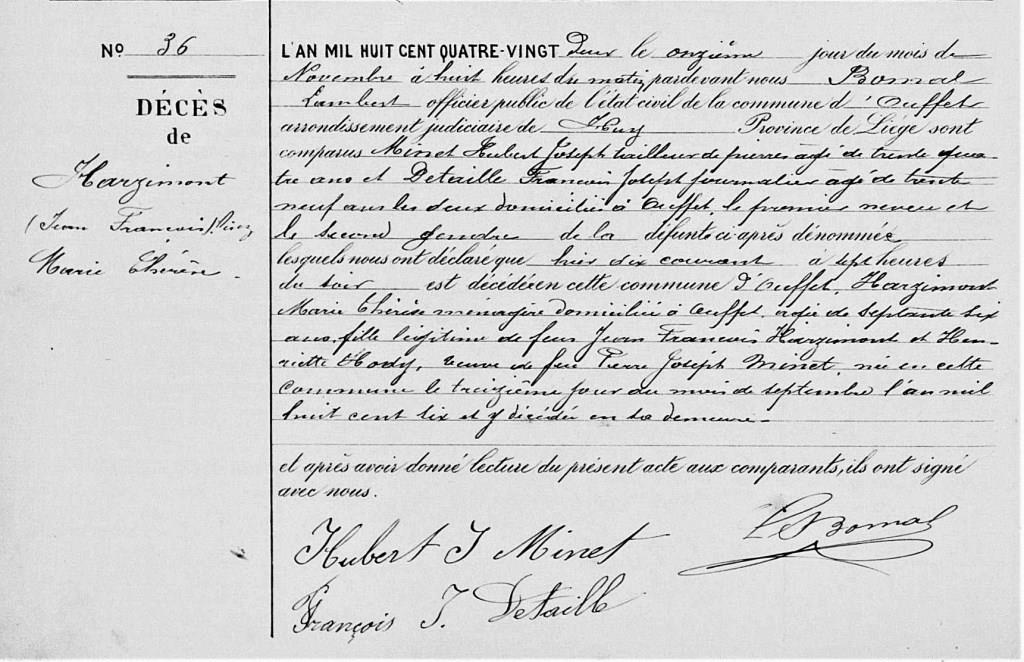 No 36
DÉCÈS
de
Harzimont
(Jean François)
Marie Thérèse
L'AN MIL HUIT CENT QUATRE-VINGT Deux le onzième jour du mois de
Novembre à huit heures du matin, pardevant nous Bomal
Lambert officier public de l'état civil de la commune d'Ouffet
arrondissement judiciaire de Huy Province de Liége sont
comparus Minet Hubert Joseph tailleur de pierres âgé de trente qua-
tre ans et Detaille François Joseph journalier âgé de trente
neuf ans les deux domiciliés à Ouffet, le premier neveu et
le second gendre de la défunte ci-après dénommée
lesquels nous ont déclaré que hier dix courant à sept heures
du soir est décédée en cette commune d'Ouffet, Harzimont
Marie Thérèse ménagère domiciliée à Ouffet, agée de septante six
ans, fille légitime de feus Jean François Harzimont et Hen-
riette Hody, veuve de feu Pierre Joseph Minet, née en cette
commune le treizième jour du mois de septembre l'an mil
huit cent six et y décédée en sa demeure.
et après avoir donné lecture du présent acte aux comparants, ils ont signé
avec nous.
Hubert J Minet
L Bomal
François J. Detaille